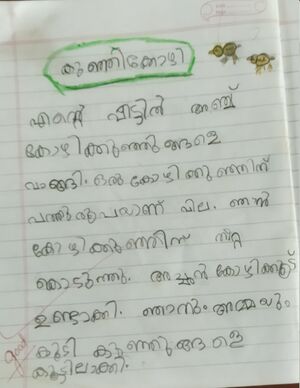 കുഞ്ഞിക്കോഴി
എന്റെ വീട്ടിൽ അഞ്ച്
കോഴിക്കുഞ്ഞുങ്ങളെ
വാങ്ങി. ഒരു കോഴിക്കുഞ്ഞിന്
പത്തുരൂപയാണ് വില. ഞാൻ
കോഴിക്കുഞ്ഞിന് തീറ്റ
കൊടുത്തു. അച്ഛൻ കോഴിക്കൂട്
ഉണ്ടാക്കി. ഞാനും അമ്മയും
കൂടി കുഞ്ഞുങ്ങളെ
കൂട്ടിലാക്കി.
good